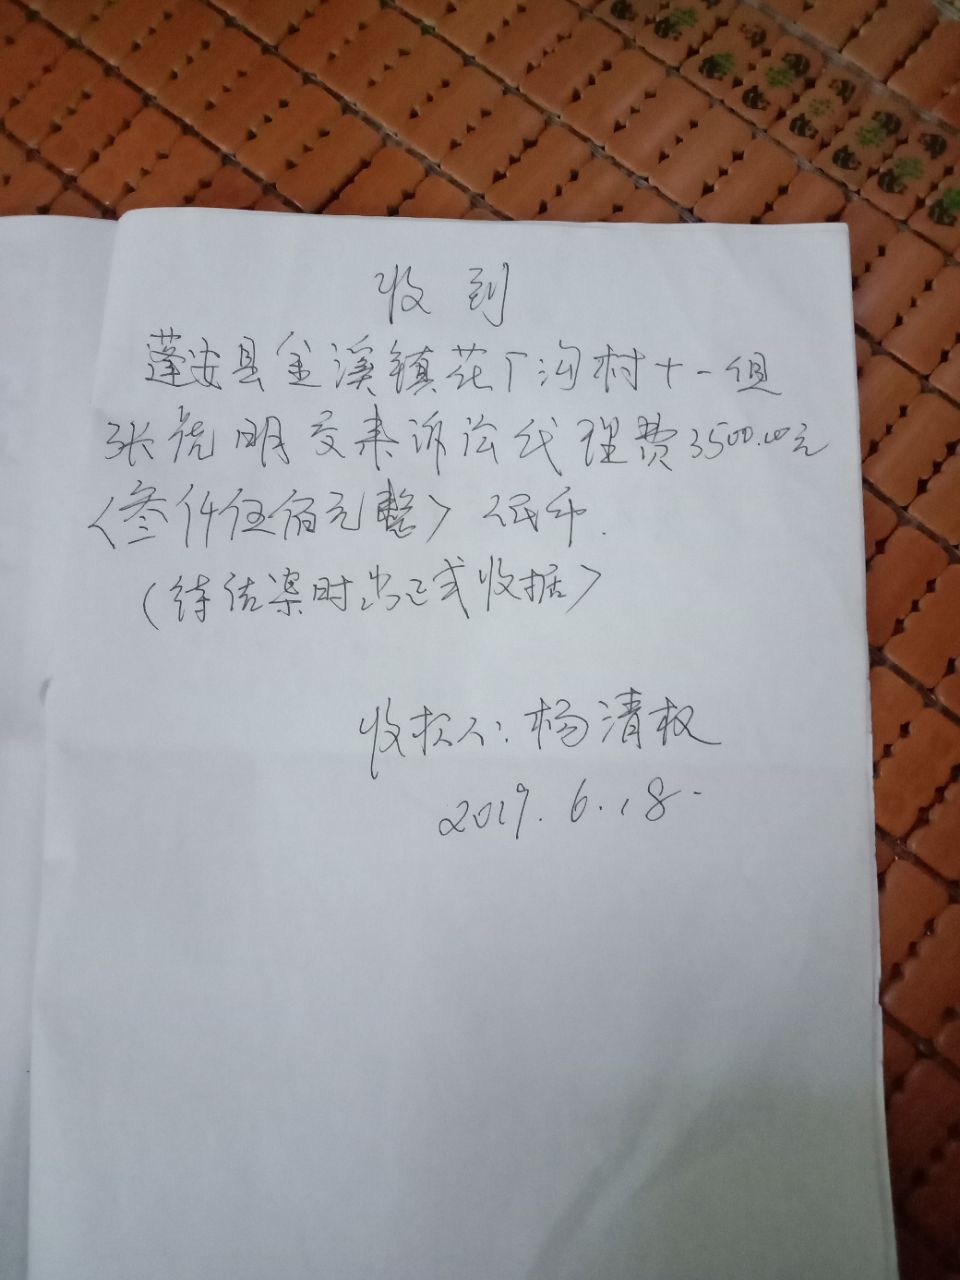 收到
蓬安县金溪镇花厂沟村十一组
张尧明交来诉讼代理费3500.00元
(叁仟伍佰元整)人民币.
(待结案时出正式收据)
收款人:杨清权
2019.6.18.